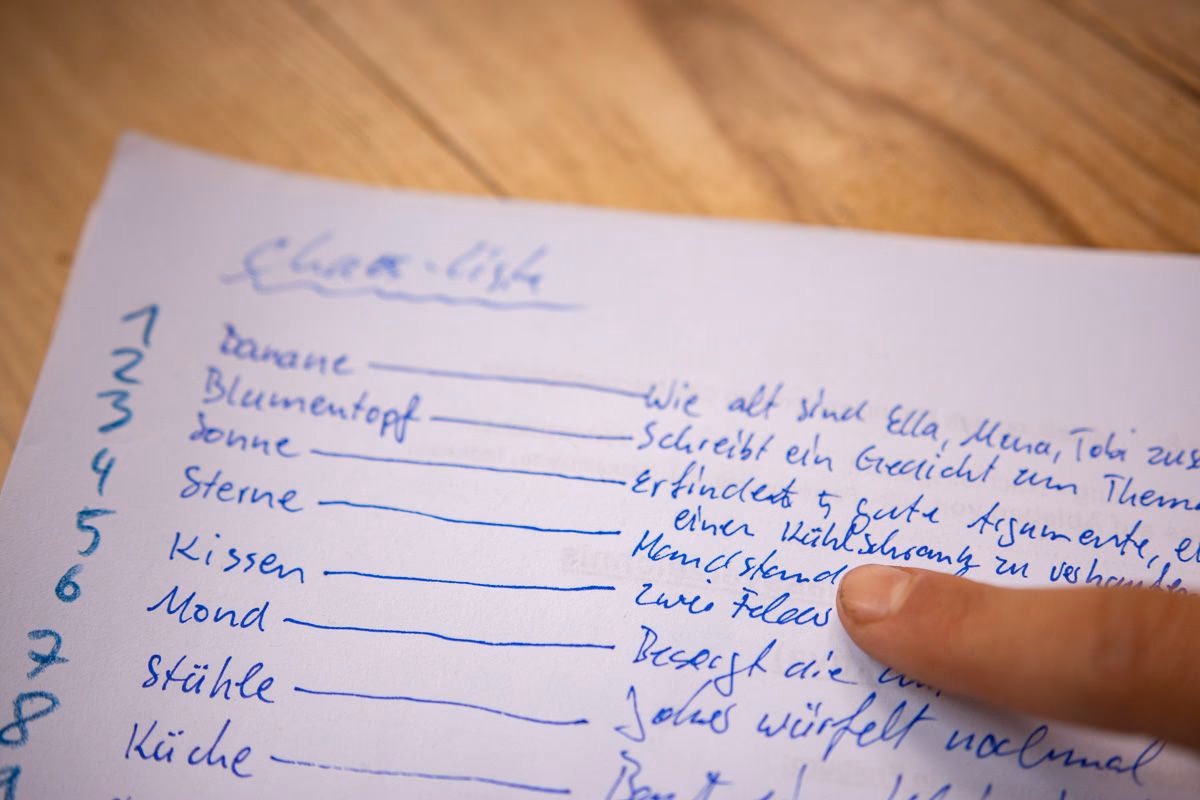 Chaos-liste
1 Banane — Wie alt sind Ella, Mona, Tobi
2 Blumentopf — Schreibt ein Gedicht zum Thema
3 Sonne — Erfindet 5 gute Argumente,
einen Kühlschrank zu verkaufen
4 Sterne — Handstand
5 Kissen — zwei Felder
6 Mond — Besorgt die
7 Stühle — Joker würfelt nochmal
8 Küche
9